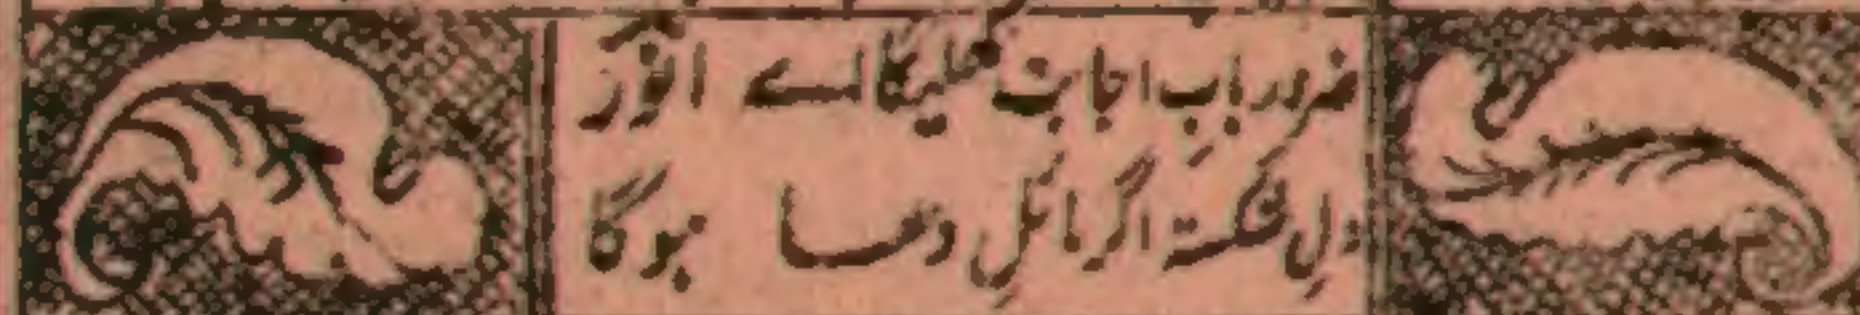 ضرور بابِ اجابت کھلیگا اے انورؔ
دلِ شکستہ اگر مائلِ دعا ہوگا